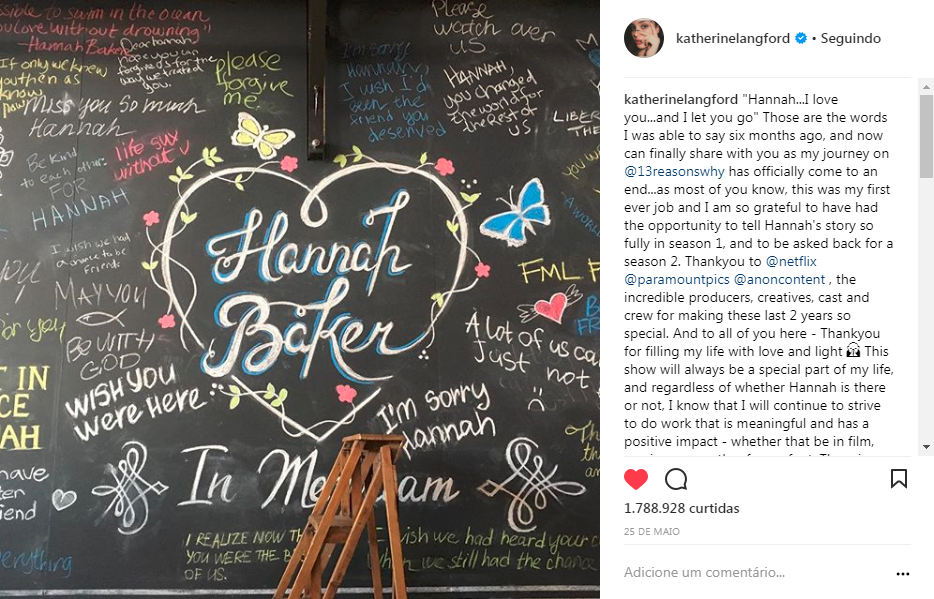 ssible to swim in the ocean
ou love without drowning"
-Hannah Baker
If only we knew
you then as
know
now
Dear hannah,
hope you can
forgive us for the
way we treated
you.
Please
forgive
me.
Miss you so much
Hannah
Be Kind
to each other
FOR
HANNAH
life sux
without U
I wish we had
a chance to be
Friends
MAY YOU
BE WITH
GOD
WISH YOU
WERE HERE
I'm sorry
Hannah,
I wish I'd
been the
friend you
deserved
Please
watch over
US
HANNAH,
you changed
the world for
the rest of
US
LIBER
THE
Hannah
Baker
FML F
A lot of us ca
Just not
I'm sorry
Hannah
In Me am
I REALIZE NOW TH
YOU WERE THE B
OF US.
wish we had heard your c
when we still had the chance
for you
T IN
CE
AH
have
iend
everything
katherinelangford • Seguindo
katherinelangford "Hannah...I love
you...and I let you go" Those are the words
I was able to say six months ago, and now
can finally share with you as my journey on
@13reasonswhy has officially come to an
end...as most of you know, this was my first
ever job and I am so grateful to have had
the opportunity to tell Hannah's story so
fully in season 1, and to be asked back for a
season 2. Thankyou to @netflix
@paramountpics @anoncontent , the
incredible producers, creatives, cast and
crew for making these last 2 years so
special. And to all of you here - Thankyou
for filling my life with love and light This
show will always be a special part of my life,
and regardless of whether Hannah is there
or not, I know that I will continue to strive
to do work that is meaningful and has a
positive impact - whether that be in film,
1.788.928 curtidas
25 DE MAIO
Adicione um comentário...